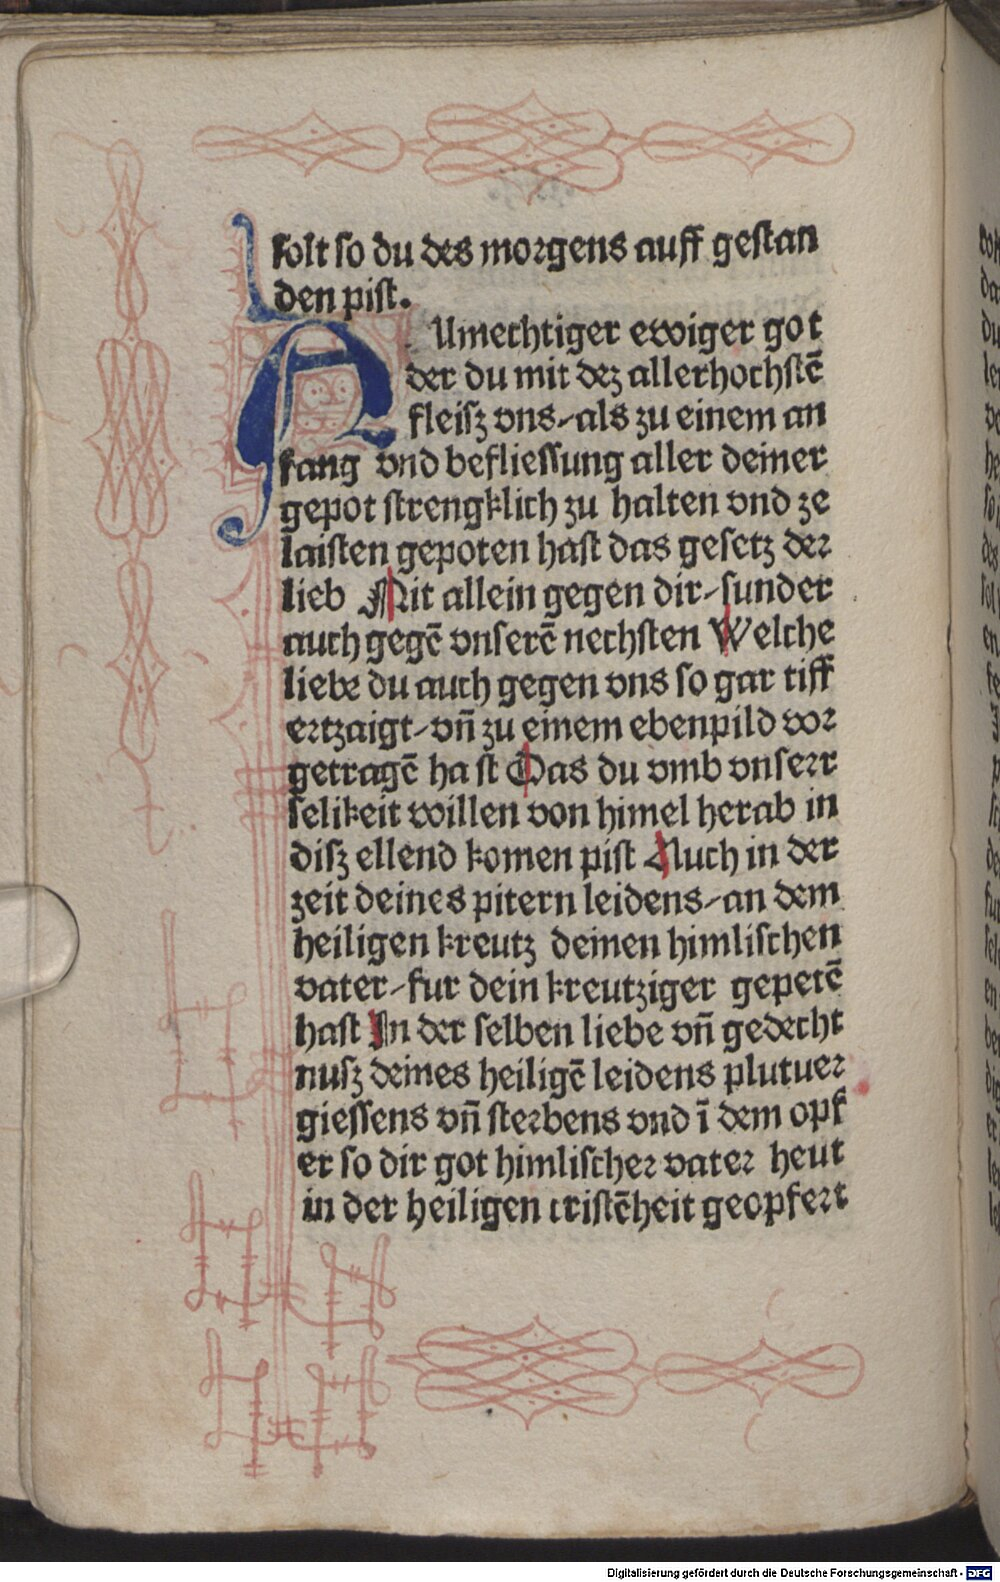 solt so du des morgens auff gestan
den pist.
AUmechtiger ewiger got
der du mit dez allerhochstē
fleisz vns/als zu einem an
fang vnd befliessung aller deiner
gepot strengklich zu halten vnd ze
laisten gepoten hast das gesetz der
lieb Nit allein gegen dir/sunder
auch gegē vnserē nechsten Welche
liebe du auch gegen vns so gar tiff
ertzaigt/vn̄ zu einem ebenpild vor
getragē hast Das du vmb vnserr
selikeit willen von himel herab in
disz ellend komen pist Auch in der
zeit deines pitern leidens/an dem
heiligen kreutz deinen himlischen
vater/fur dein kreutziger gepetē
hast In der selben liebe vn̄ gedecht
nusz deines heiligē leidens plutuer
giessens vn̄ sterbens vnd ī dem opf
er so dir got himlischer vater heut
in der heiligen cristēheit geopfert
Digitalisierung gefördert durch die Deutsche Forschungsgemeinschaft - DFG